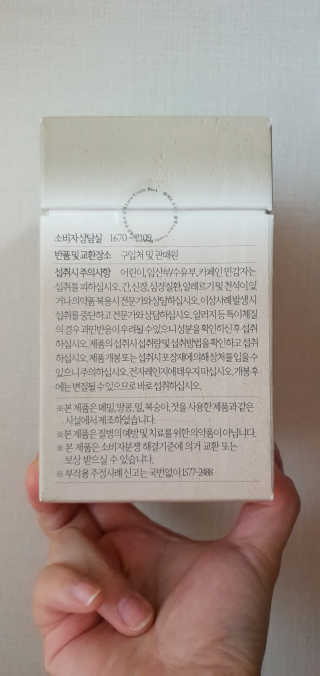 소비자상담실 1670-
반품 및 교환장소 구입처 및 판매원
섭취시 주의사항 어린이, 임산부/수유부, 카페인 민감자는
섭취를 피하십시오. 간, 신장, 심장질환, 알레르기 및 천식이 있
거나 의약품 복용 시 전문가와 상담하십시오. 이상사례 발생 시
섭취를 중단하고 전문가와 상담하십시오. 알러지 등 특이체질
의 경우 과민반응이 우려될 수 있으니 성분을 확인하신 후 섭취
하십시오. 제품의 섭취 시 섭취량 및 섭취방법을 확인하고 섭취
하십시오. 제품 개봉 또는 섭취시 포장재에 의해 상처를 입을 수
있으니 주의하십시오. 전자레인지에 데우지 마십시오. 개봉 후
에는 변질될 수 있으므로 바로 섭취하십시오.
※본 제품은 메밀, 땅콩, 밀, 복숭아, 잣을 사용한 제품과 같은
시설에서 제조하였습니다.
※본 제품은 질병의 예방 및 치료를 위한 의약품이 아닙니다.
※본 제품은 소비자분쟁 해결기준에 의거 교환 또는
보상 받으실 수 있습니다.
※부작용 추정사례 신고는 국번없이 1577-2488